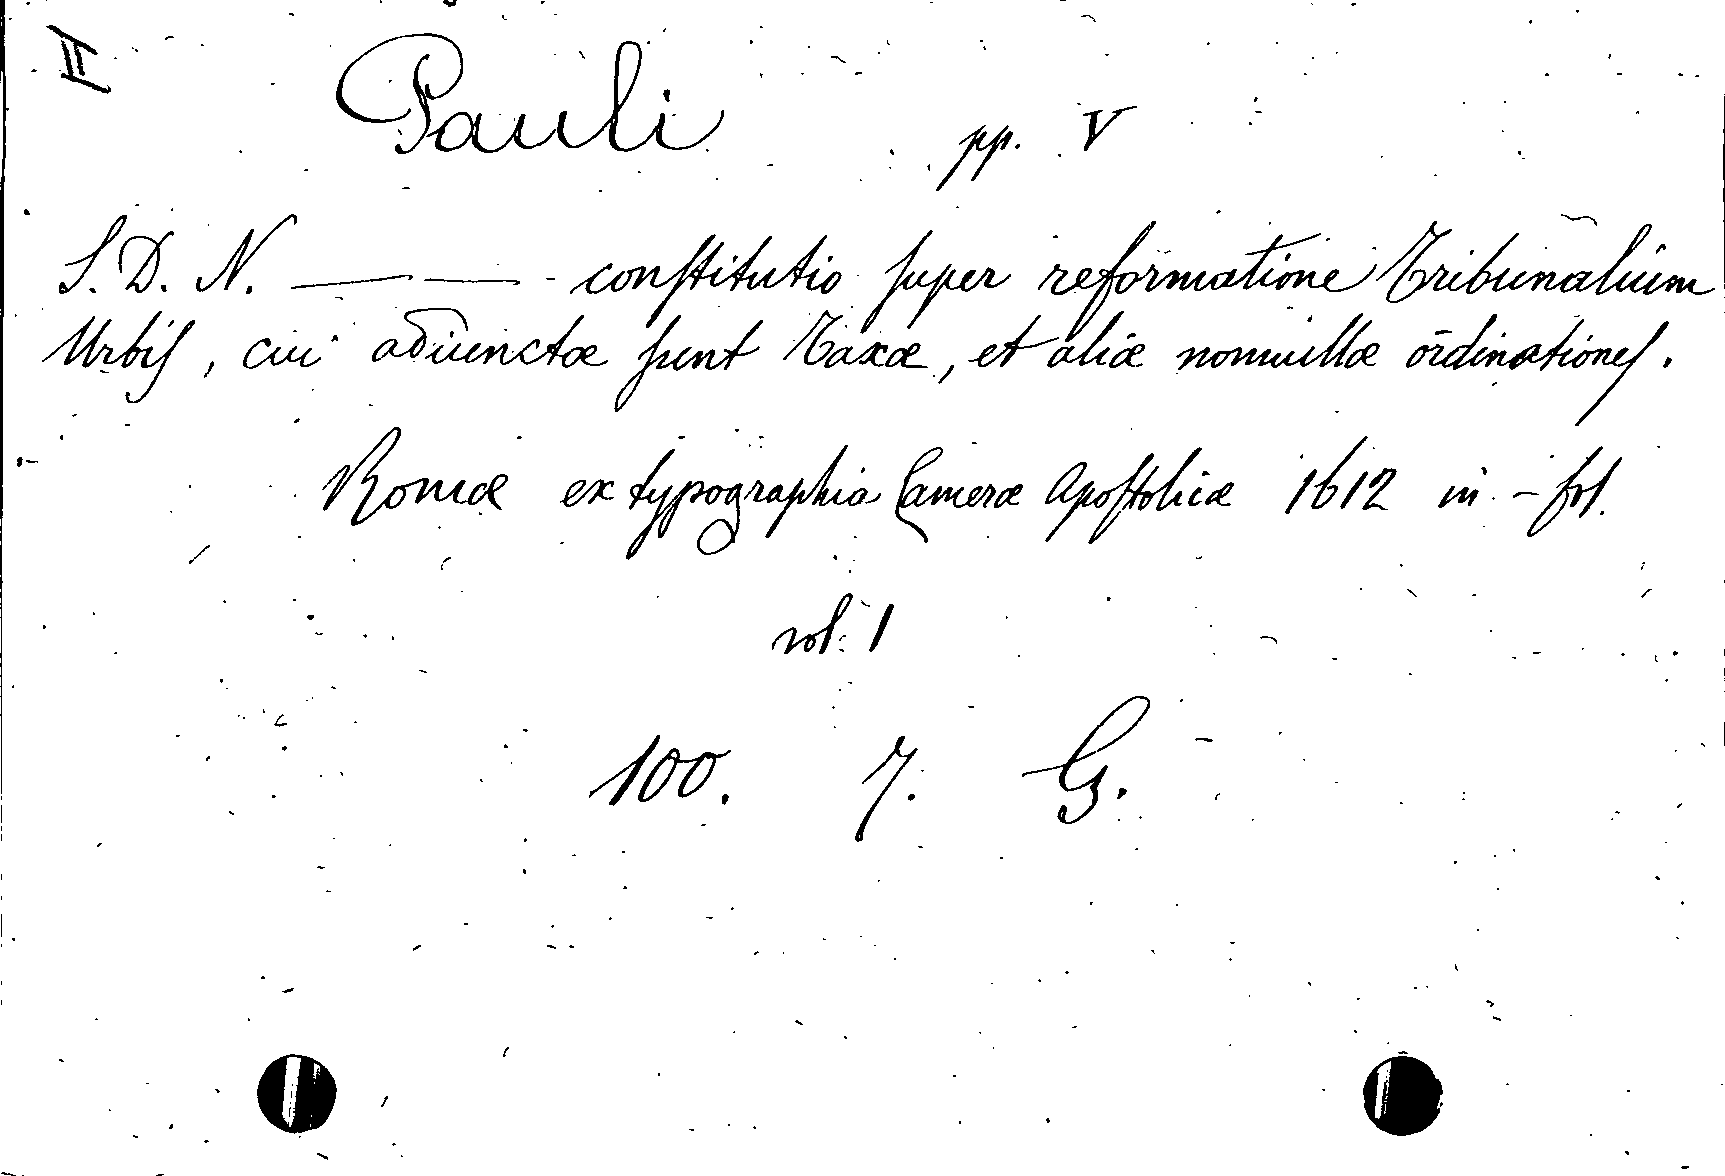 II
Pauli pp. V
S. D. N. — — constitutio super reformatione Tribunalium
Urbis, cui adiunctæ sunt Taxæ, et aliæ nonnullæ ordinationes.
Romæ ex typographia Cameræ Apostolicæ 1612 in - fol.
vol. 1
100. 7. G.